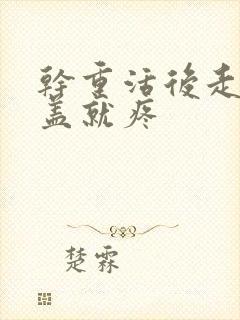 幹重活後走
盖就疼
楚霖